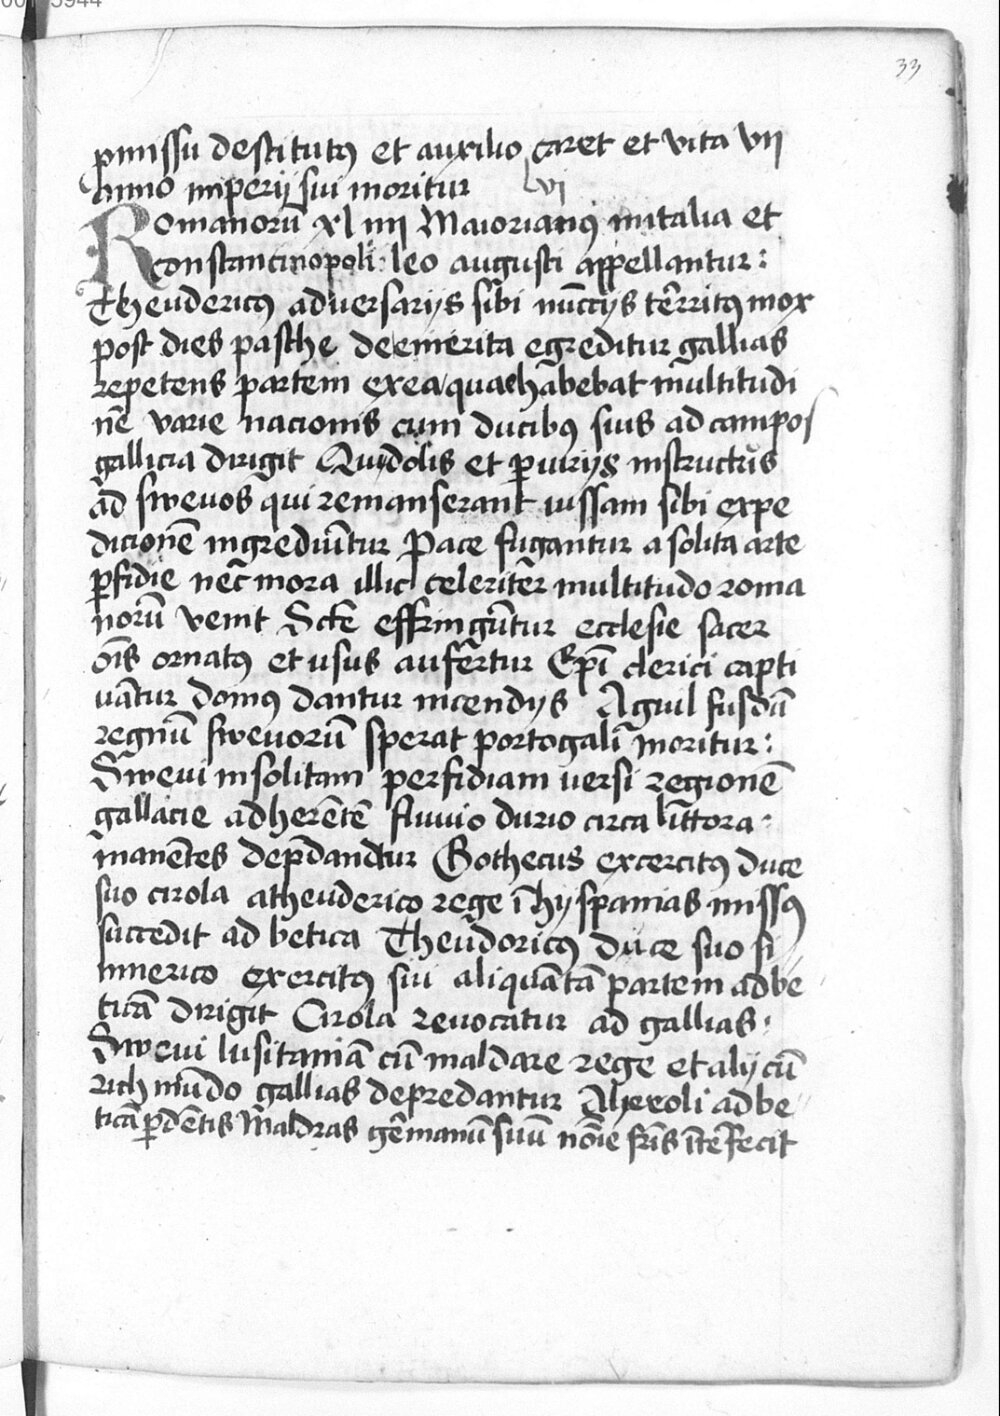 33
pmissu destitutꝰ et auxilio caret et vita vii
anno imperij sui moritur vi
Romanorū xl iiii Maiorianꝰ in italia et
constantinopoli leo augusti appellantur :
Theudericꝰ adversarijs sibi nūccijs territꝰ mox
post dies pasche de emerita egreditur gallias
repetens partem ex ea qua habebat multitudi
nē varie nacionis cum ducibꝰ suis ad campos
gallicia dirigit Qui dolis et piurijs instructus
ad swevos qui remanserant iussam sibi expe
dicionē ingrediūtur Pace fugantur a solita arte
pfidie nec mora illic celeriter multitudo roma
norū venit Scte effringūtur ecclesie sacer
ōis ornatꝰ et usus aufertur Epī clerici capti
vātur domꝰ dantur incendijs Aguil fusdā
regnū swevorū sperat portogali moritur :
Swevi in solitam perfidiam versi regionē
gallacie adherētē fluvio durio circa littora
manētes depdantur Gothecus excercitꝰ duce
suo cirola a theuderico rege ī hyspanias missꝰ
succedit ad betica Theudoricꝰ duce suo si
nnerico exercitꝰ sui aliquātā partem ad be
ticā dirigit Cirola revocatur ad gallias :
Swevi lusitaniā cū maldare rege et alij cū
richmūdo gallias depredantur Alyeroli ad be
ticā pdētis Maldras germanū suū nōie fris īterfecit